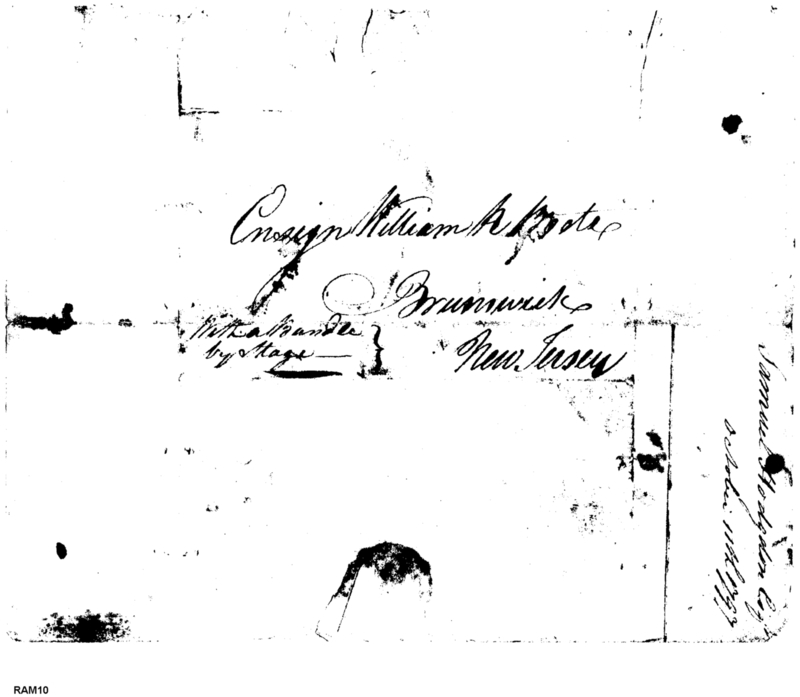 Ensign William R Boote
Brunswick
With a Bundle
by Stage
New Jersey
Samuel Hodgdon Esq
October 11th 1793
RAM10